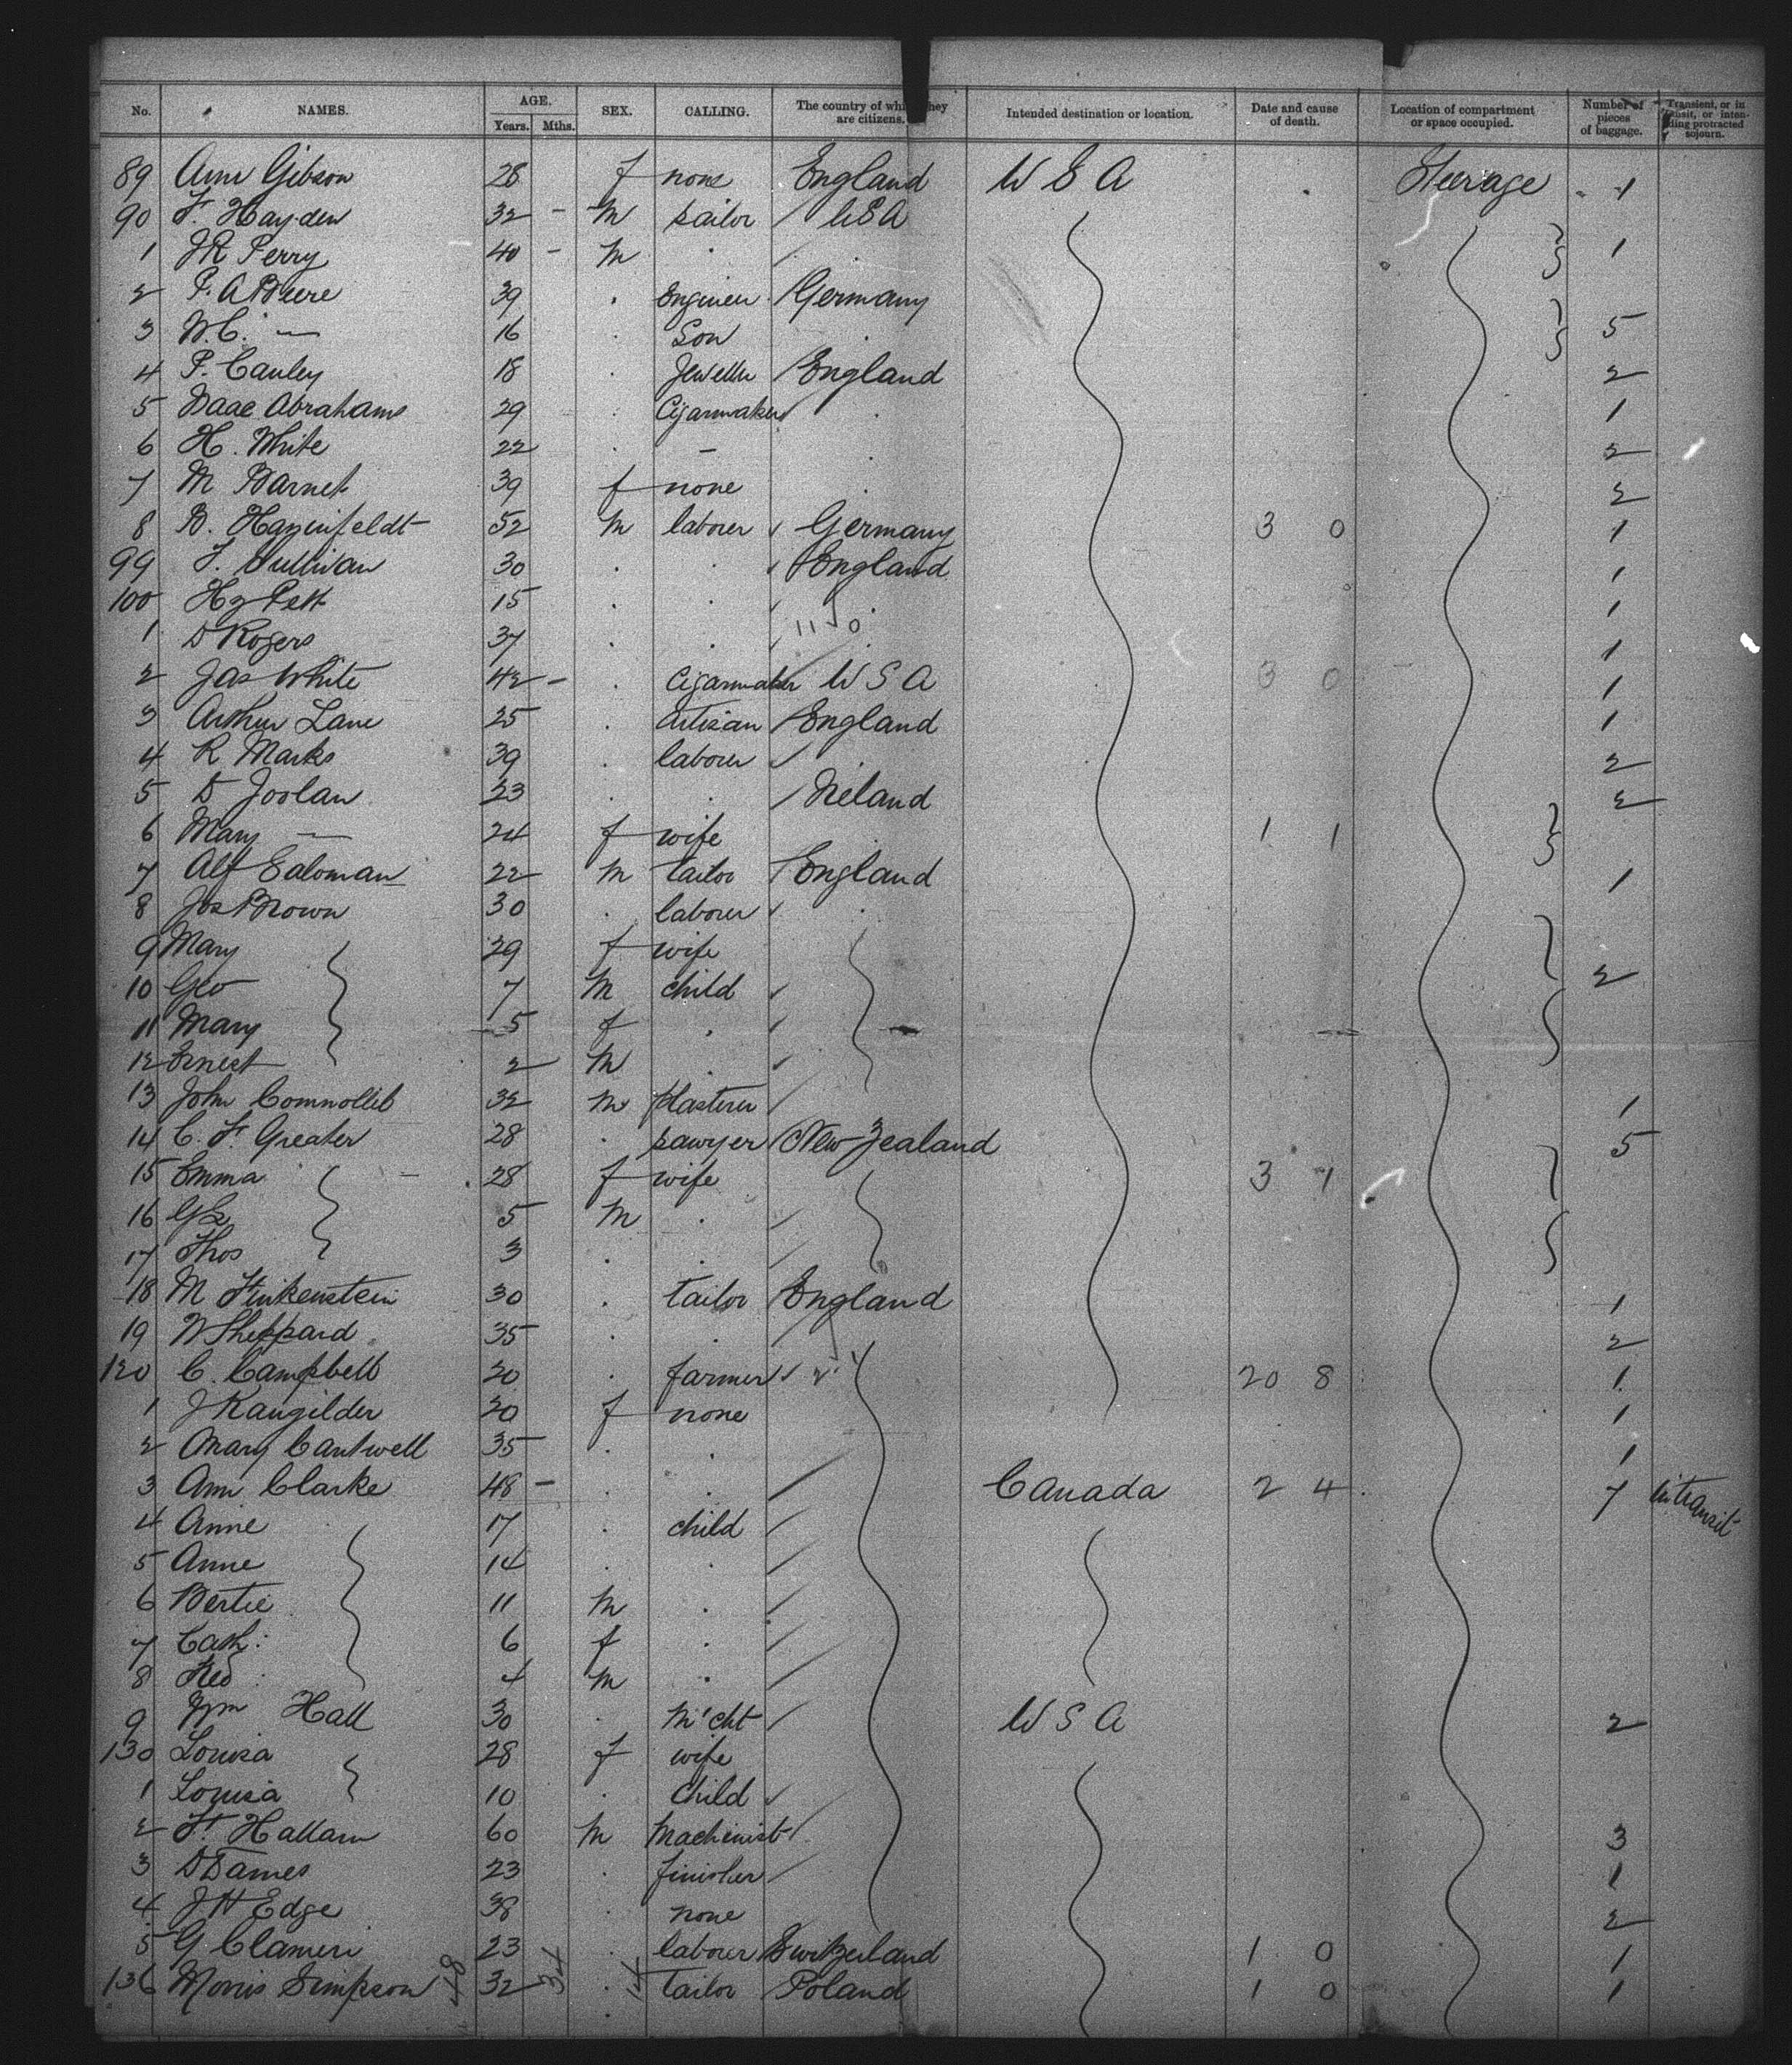 No. NAMES. AGE. Years. Mths. SEX. CALLING. The country of which they are citizens. Intended destination or location. Date and cause of death. Location of compartment or space occupied. Number of pieces of baggage. Transient, or in transit, or intending protracted sojourn.
89 Ann Gibson 28 f none England U S A Steerage 1
90 F. Hayden 32 - M sailor U S A
1 JR Perry 40 - M . . 1
2 P. A 39 . Engineer Germany
3 W.C. — 16 . Son 5
4 P. Cauley 18 . Jeweller England 2
5 Isaac Abrahams 29 . Cigarmaker . 1
6 H. White 22 . - . 2
7 M Barnet 39 f none . 2
8 B. Hazinfeldt 52 M laborer Germany 3 0 1
99 J. Sullivan 30 . . England 1
100 Hy Pett 15 . . . 1
1 D Rogers 37 . . 11 0 1
2 Jas White 42 - . Cigarmaker U S A 3 0 1
3 Arthur Lane 25 . artisan England 1
4 R Marks 39 . laborer 2
5 D Joolan 23 . . Ireland 2
6 Mary — 24 f wife 1 1
7 Alf Saloman 22 M tailor England 1
8 Jos Brown 30 . laborer .
9 Mary 29 f wife
10 Geo 7 M child 2
11 Mary 5 f .
12 Ernest 2 M .
13 John 32 M plasterer 1
14 C. F. Greater 28 . sawyer New Zealand 5
15 Emma 28 f wife 3 1
16 5 M .
17 Thos 3 . .
18 M Finkenstein 30 . tailor England 1
19 W Sheppard 35 . . 2
120 C. Campbell 20 . farmer 20 8 1
1 J Kangilder 20 f none 1
2 Mary Cantwell 35 . . 1
3 Ann Clarke 48 - . . Canada 2 4 7 in transit
4 Annie 17 . child
5 Anne 14 . .
6 Bertie 11 M .
7 Cath: 6 f .
8 Fred 4 M .
9 Wm Hall 30 . M'cht U S A 2
130 Louisa 28 f wife
1 Louisa 10 . child
2 F. Hallam 60 M Machinist 3
3 D James 23 . finisher 1
4 J H Edge 38 . none 2
5 G Clameri 23 . laborer Switzerland 1 0 1
136 Morris Simpson 48 32 34 . 14 tailor Poland 1 0 1